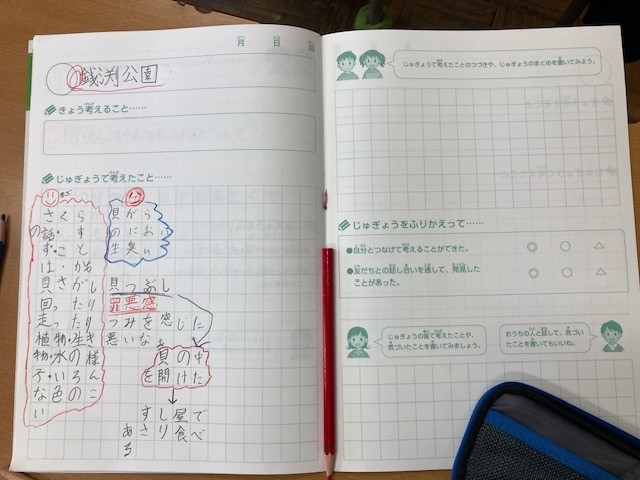 月 日
銭渕公園
きょう考えること……
じゅぎょうで考えたこと……
さくら
の話・す
ず・こと
は・かも
貝さがし
回ったり
走ったり
植物・生き
物・水の様
子・いろん
な色のこ
い
貝がら
のにおい
生臭い
貝つぶし
罪悪感
つみを感じた
悪いな
貝の中
を開けた
すし屋で
食べ
じゅぎょうで考えたことのつづきや、じゅぎょうのまとめを書いてみよう。
じゅぎょうをふりかえって……
●自分とつなげて考えることができた。 ◎ ○ △
●友だちとの話し合いを通して、発見した
ことがあった。 ◎ ○ △
じゅぎょうの後で考えたことや、
気づいたことを書いてみましょう。
おうちの人と話して、気づい
たことを書いてもいいね。